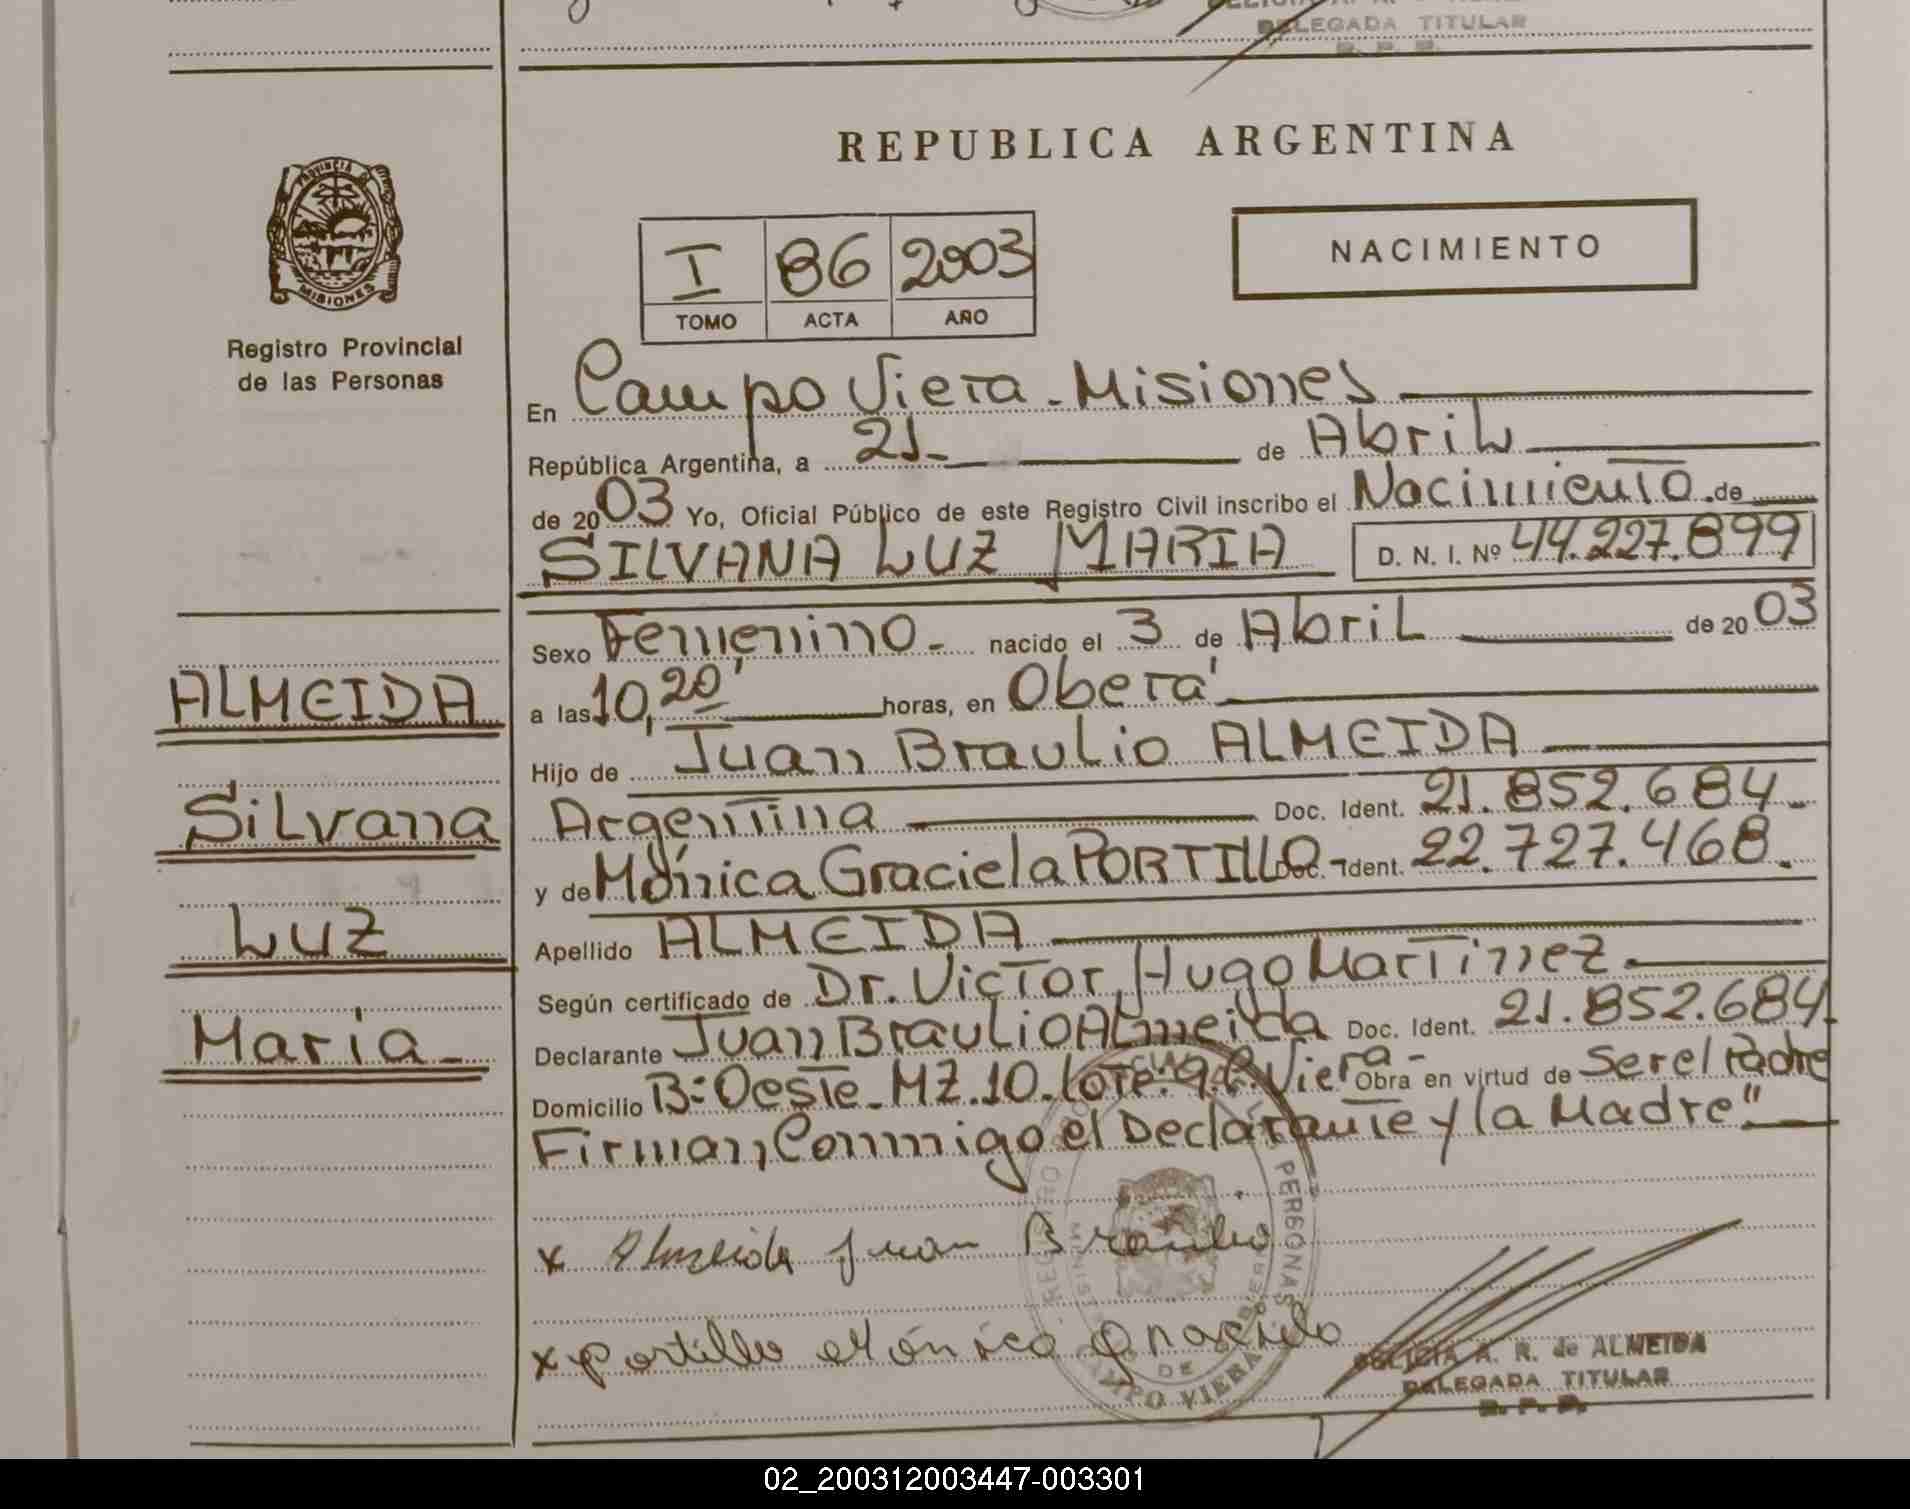 DELEGADA TITULAR
R. P. P.
REPUBLICA ARGENTINA
PROVINCIA DE
MISIONES
Registro Provincial
de las Personas
I 86 2003
TOMO ACTA AÑO
NACIMIENTO
En Campo Viera - Misiones
República Argentina, a 21 - de Abril
de 2003 Yo, Oficial Público de este Registro Civil inscribo el Nacimiento de
SILVANA LUZ MARIA D. N. I. Nº 44.227.899
Sexo Femenino - nacido el 3 de Abril de 2003
a las 10,20' horas, en Oberá
Hijo de Juan Braulio ALMEIDA
Argentina Doc. Ident. 21.852.684 -
y de Mónica Graciela PORTILLO - Doc. Ident. 22.727.468.
Apellido ALMEIDA
Según certificado de Dr. Victor Hugo Martinez.
Declarante Juan Braulio Almeida Doc. Ident. 21.852.684.
Domicilio B: Oeste - MZ. 10. lote: 9. C. Viera - Obra en virtud de Ser el Padre
Firman Conmigo el Declarante y la Madre"
x Almeida Juan Braulio
x portillo Mónica Graciela
ALMEIDA
Silvana
Luz
Maria -
REGISTRO
PERSONAS
DE
CAMPO VIERA
A. R. de ALMEIDA
DELEGADA TITULAR
R. P. P.
02_200312003447-003301